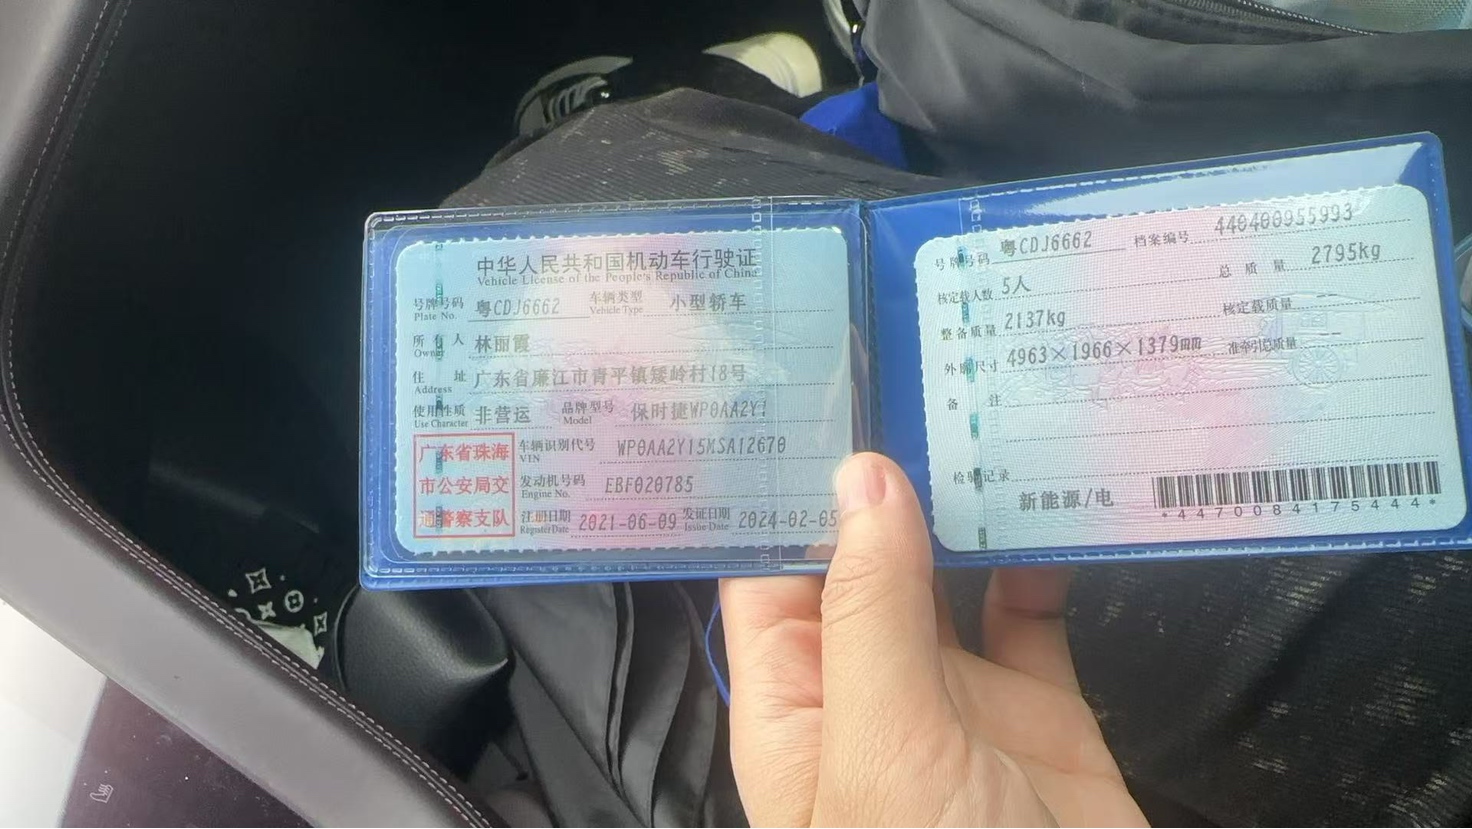 中华人民共和国机动车行驶证
Vehicle License of the People's Republic of China
号牌号码 粤CDJ6662 车辆类型 小型轿车
Plate No. Vehicle Type
所有人 林丽霞
Owner
住址 广东省廉江市青平镇矮岭村18号
Address
使用性质 非营运 品牌型号 保时捷WP0AA2Y1
Use Character Model
广东省珠海
市公安局交
通警察支队
车辆识别代号 WP0AA2Y15MSA12670
VIN
发动机号码 EBF020785
Engine No.
注册日期 2021-06-09 发证日期 2024-02-05
Register Date Issue Date
号牌号码 粤CDJ6662 档案编号 440400955993
核定载人数 5人 总质量 2795kg
整备质量 2137kg 核定载质量 --
外廓尺寸 4963×1966×1379mm 准牵引总质量 --
备注
检验记录
新能源/电
*4470084175444*